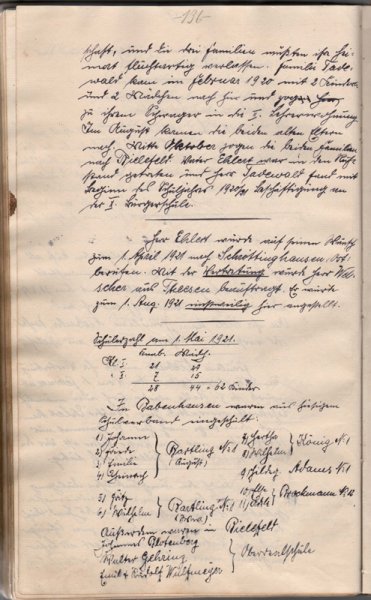 -136-
schaft, und die drei Familien mußten ihre Hei-
mat fluchtartig verlassen. Familie Tade-
wald kam im Februar 1920 mit 2 Kindern
und 2 Mädchen nach hier und zogen
zu ihrem Schwager in die II. Lehrerwohnung.
Im August kamen die beiden alten Eltern
nach. Mitte Oktober zogen die beiden Familien
nach Bielefeld. Vater Ehlert war in den Ruhe-
stand getreten und Herr Tadewald fand mit
Beginn des Schuljahres 1920/21 Beschäftigung an
der I. Bürgerschule.
Herr Ehlert wurde auf seinen Wunsch
zum 1. April 1921 nach Schöttinghausen
berufen. Mit der Vertretung wurde Herr
aus Theesen beauftragt. Er wurde
zum 1. Aug. 1921 einstweilig hier angestellt.
Schülerzahl am 1. Mai 1921.
Knab. Mädch.
Kl. I 21 29
" II 7 15
28 44 = 62 Kinder
In Babenhausen waren aus hiesigem
Schulverband eingeschult:
1) Johanne
2) Frieda
3) Emilie
4) Heinrich
Bartling № 1
(August)
5)
6) Wilhelm
Bartling № 1
7) Hertha
8) Wilhelm
König № 1
9) Hedwig Adams № 1
10) Else
11)
Brockmann № 12
Außerdem waren in Bielefeld
Johannes Blotenberg
Walter Gehring
Emil & Rudolf Wulfmeyer
Oberrealschule